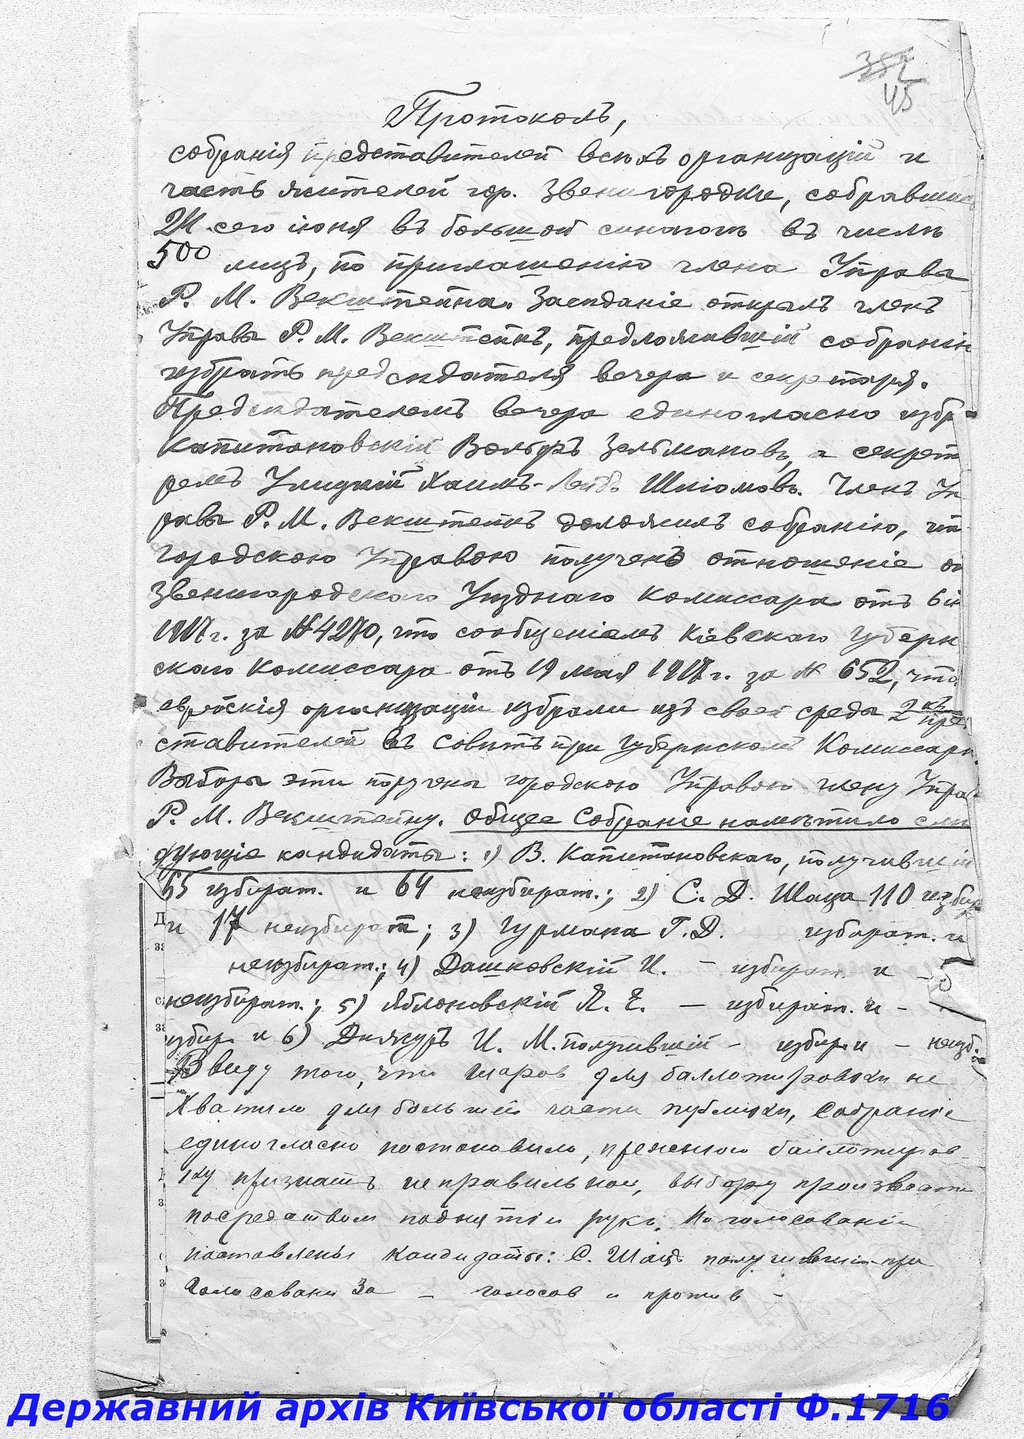 387
45
Протоколъ,
собранія представителей всѣхъ организацій и
часть жителей гор. Звенигородки, собравшись
24 сего іюня въ большой синагогѣ въ числѣ
500 лицъ, по приглашенію члена Управы
Р. М. Векштейна. Засѣданіе открылъ членъ
Управы Р. М. Векштейнъ, предложившій собранію
избрать предсѣдателя вечера и секретаря.
Предсѣдателемъ вечера единогласно избр
Капитановскій Вольфъ Зельмановъ, а секрет
ремъ Улицкій Хаимъ-Лейбъ Шліомовъ. Членъ Уп
равы Р. М. Векштейнъ доложилъ собранію, что
городскою Управою получено отношеніе от
Звенигородского Уѣзднаго Комиссара отъ 6 ію
1917 г. за № 4270, что сообщеніемъ Кіевскаго Губерн
скаго Комиссара отъ 19 мая 1917 г. за № 652, что
еврейскія организаціи избрали изъ своей среды 2 пред
ставителей въ Совѣтъ при Губернскомъ Комиссарѣ.
Выборы эти поручены городскою Управою члену Упра
Р. М. Векштейну. Общее Собраніе намѣтило слѣ
дующіе кандидаты: 1) В. Капитановскаго, получившій
65 избират. и 64 неизбират.; 2) С. Д. Шаца 110 избир
и 17 неизбират; 3) Гурмана Г. Д. избират. и
неизбират.; 4) Дашковскій И. – избират и –
неизбират.; 5) Яблоновскій Я. Е. — избират. и –
избир и 6) И. М. получившій – избир и – неизб.
Ввиду того, что шаров для баллотировки не
хватило для большей части публики, Собраніе
единогласно постановило, прежнюю баллотиров-
ку признать неправильной, выборы произвести
посредством поднятія руки. По голосованіи
поставлены кандидаты: С. Шацъ получившій при
голосовании За – голосов и против –
Державний архів Київської області Ф.1716